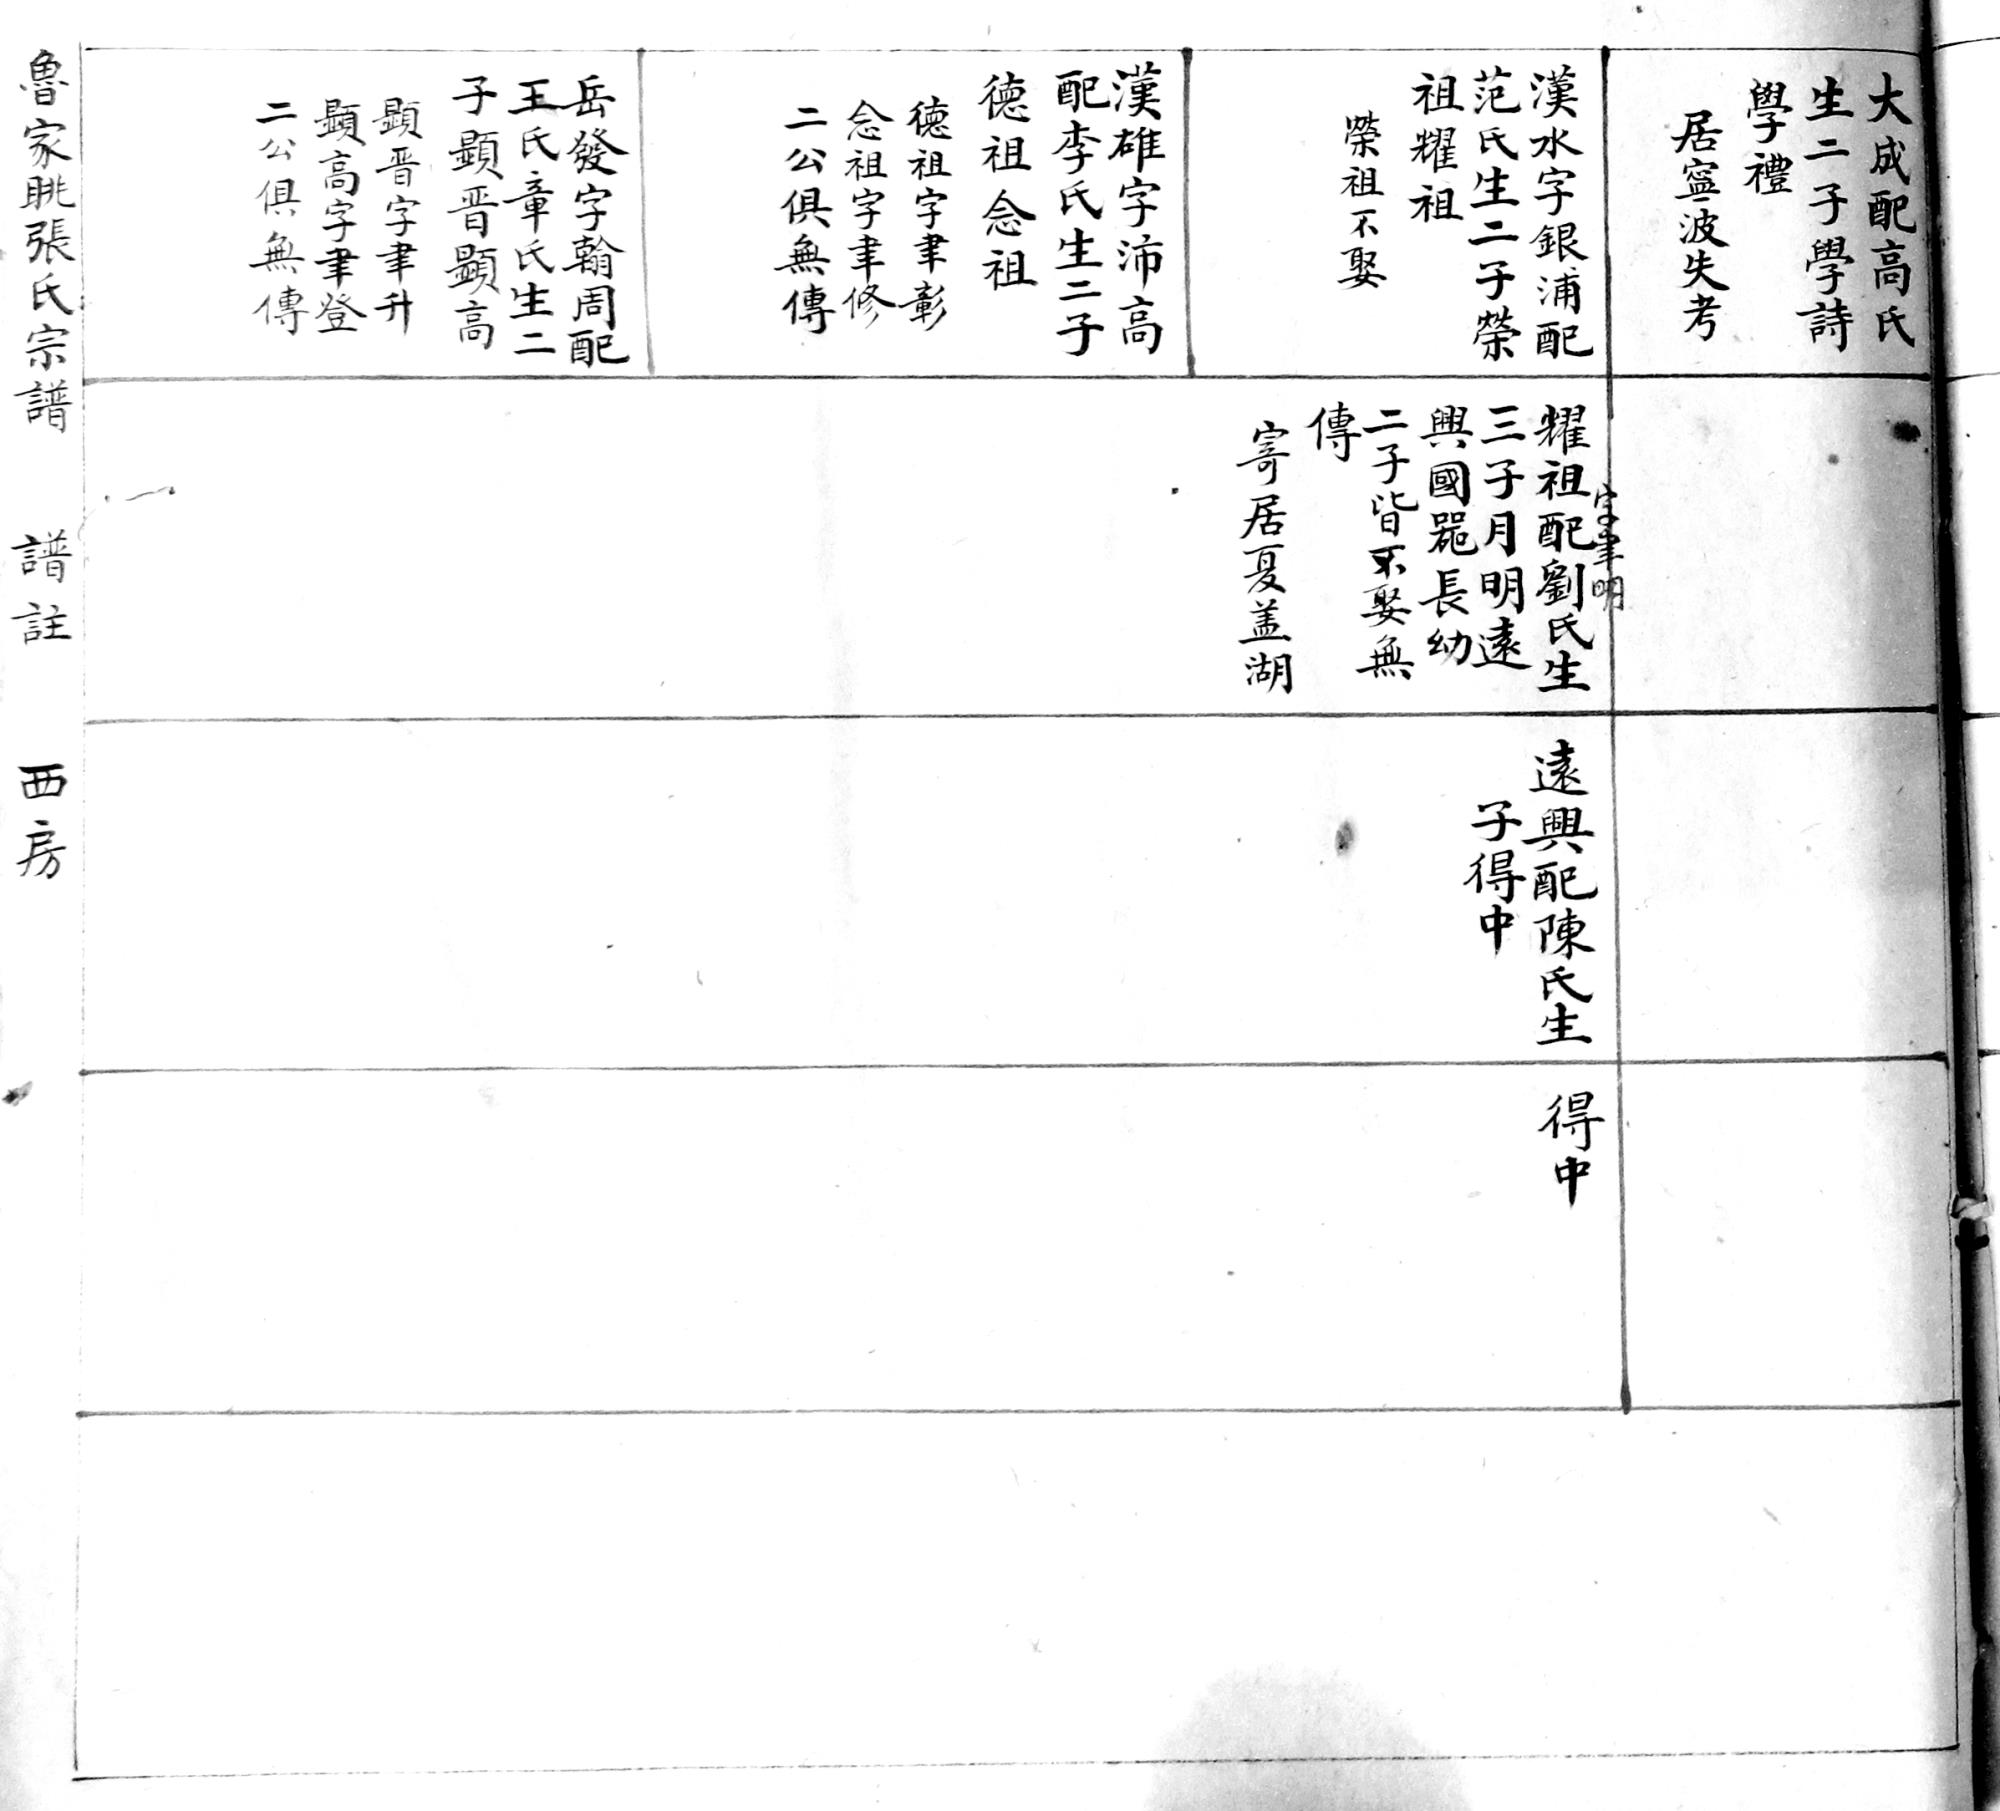 大成配高氏
生二子學詩
學禮
居寧波失考
漢水字銀浦配
范氏生二子榮
祖耀祖
榮祖不娶
漢雄字沛高
配李氏生二子
德祖念祖
德祖字聿彰
念祖字聿修
二公俱無傳
岳發字翰周配
王氏章氏生二
子顯晋顯高
顯晋字聿升
顯高字聿登
二公俱無傳
字聿明
耀祖配劉氏生
三子月明遠
興國噐長幼
二子皆不娶無
傳
寄居夏盖湖
遠興配陳氏生
子得中
得中
魯家眺張氏宗譜 譜註 西房